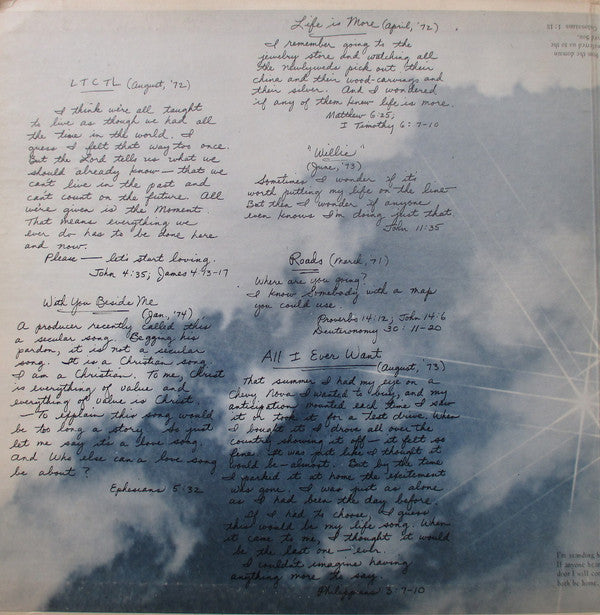 LTCTL (August, '72)
I think we're all taught
to live as though we had all
the time in the world. I
guess I felt that way too once.
But the Lord tells us what we
should already know — that we
can't live in the past and
can't count on the future. All
we're given is the Moment.
That means everything we
ever do has to be done here
and now.
Please — let's start loving.
John 4:35; James 4:13-17
With You Beside Me
(Jan., '74)
A producer recently called this
a secular song. Begging his
pardon, it is not a secular
song. It is a Christian song.
I am a Christian. To me, Christ
is everything of value and
everything of value is Christ.
— To explain this song would
be too long a story. So just
let me say it's a love song.
And Who else can a love song
be about?
Ephesians 5:32
Life is More (April, '72)
I remember going to the
jewelry store and watching all
the newlyweds pick out their
china and their wood-carvings and
their silver. And I wondered
if any of them knew life is more.
Matthew 6:25;
I Timothy 6:7-10
"Willie"
(June, '73)
Sometimes I wonder if it's
worth putting my life on the line.
But then I wonder if anyone
even knows I'm doing just that.
John 11:35
Roads (March, '71)
Where are you going?
I know Somebody with a map
you could use.
Proverbs 14:12; John 14:6
Deuteronomy 30:11-20
All I Ever Want
(August, '73)
That summer I had my eye on a
Chevy Nova I wanted to buy, and my
anticipation mounted each time I saw
it or took it for a test drive. When
I bought it I drove all over the
country showing it off — it felt so
fine. It was just like I thought it
would be — almost. But by the time
I parked it at home the excitement
was gone. I was just as alone
as I had been the day before.
If I had to choose, I guess
this would be my life song. When
it came to me, I thought it would
be the last one — ever.
I couldn't imagine having
anything more to say.
Philippians 3:7-10
from the domain
ferred us to the
Colossians 1:13
I'm standing
If anyone hear
door I will co
both be home.